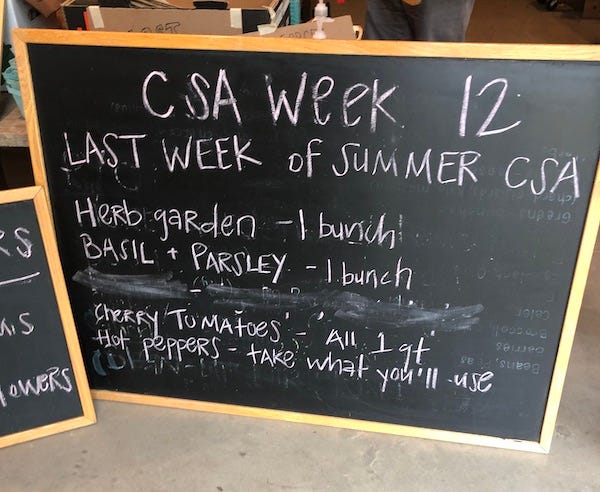 CSA Week 12
LAST WEEK of SUMMER CSA
Herb garden - 1 bunch
BASIL + PARSLEY - 1 bunch
Cherry TOMATOES - All 1 qt
Hot peppers - take what you'll use